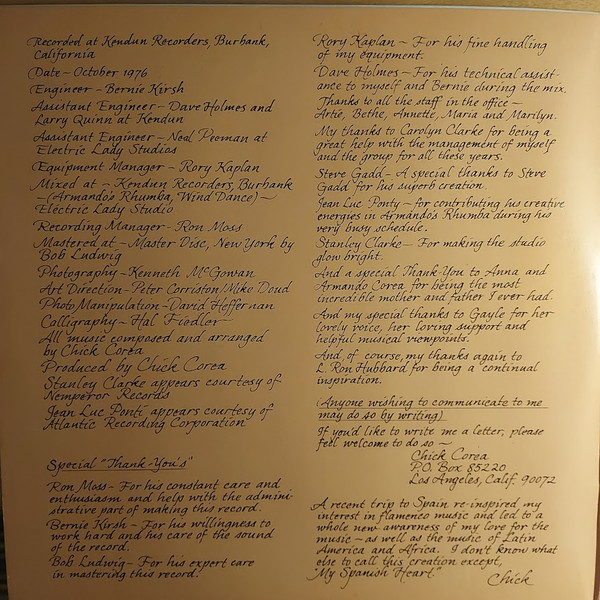 Recorded at Kendun Recorders, Burbank,
California
Date - October 1976
Engineer - Bernie Kirsh
Assistant Engineer - Dave Holmes and
Larry Quinn at Kendun
Assistant Engineer - Neal Peoman at
Electric Lady Studios
Equipment Manager - Rory Kaplan
Mixed at - Kendun Recorders, Burbank
- (Armando's Rhumba, Wind Dance) -
Electric Lady Studio
Recording Manager - Ron Moss
Mastered at - Master Disc, New York by
Bob Ludwig
Photography - Kenneth McGowan
Art Direction - Peter Corriston/Mike Doud
Photo Manipulation - David Heffernan
Calligraphy - Hal Fiedler
All music composed and arranged
by Chick Corea
Produced by Chick Corea
Stanley Clarke appears courtesy of
Nemperor Records
Jean Luc Ponti appears courtesy of
Atlantic Recording Corporation
Special "Thank-You's"
Ron Moss - For his constant care and
enthusiasm and help with the admini-
strative part of making this record.
Bernie Kirsh - For his willingness to
work hard and his care of the sound
of the record.
Bob Ludwig - For his expert care
in mastering this record.
Rory Kaplan - For his fine handling
of my equipment.
Dave Holmes - For his technical assist-
ance to myself and Bernie during the mix.
Thanks to all the staff in the office -
Artie, Bethe, Annette, Maria and Marilyn.
My thanks to Carolyn Clarke for being a
great help with the management of myself
and the group for all these years.
Steve Gadd - A special thanks to Steve
Gadd for his superb creation.
Jean Luc Ponty - for contributing his creative
energies in Armando's Rhumba during his
very busy schedule.
Stanley Clarke - For making the studio
glow bright.
And a special Thank-You to Anna and
Armando Corea for being the most
incredible mother and father I ever had.
And my special thanks to Gayle for her
lovely voice, her loving support and
helpful musical viewpoints.
And, of course, my thanks again to
L. Ron Hubbard for being a continual
inspiration.
(Anyone wishing to communicate to me
may do so by writing)
If you'd like to write me a letter, please
feel welcome to do so -
Chick Corea
P.O. Box 85220
Los Angeles, Calif. 90072
A recent trip to Spain re-inspired my
interest in flamenco music and led to a
whole new awareness of my love for the
music - as well as the music of Latin
America and Africa. I don't know what
else to call this creation except,
"My Spanish Heart."
Chick